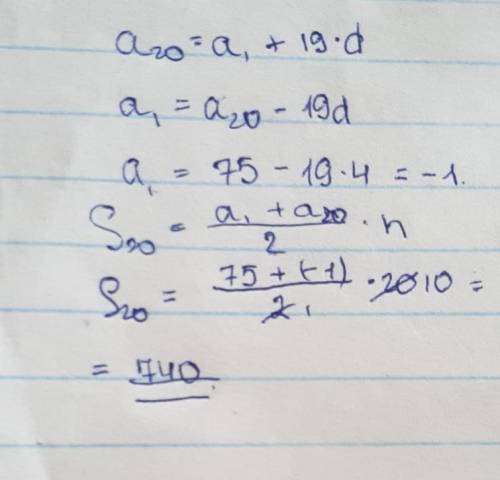 a₂₀ = a₁ + 19·d
a₁ = a₂₀ - 19d
a₁ = 75 - 19·4 = -1.
S₂₀ = (a₁ + a₂₀)/2 · n
S₂₀ = (75 + (-1))/2 1 · 20 10 =
= 740